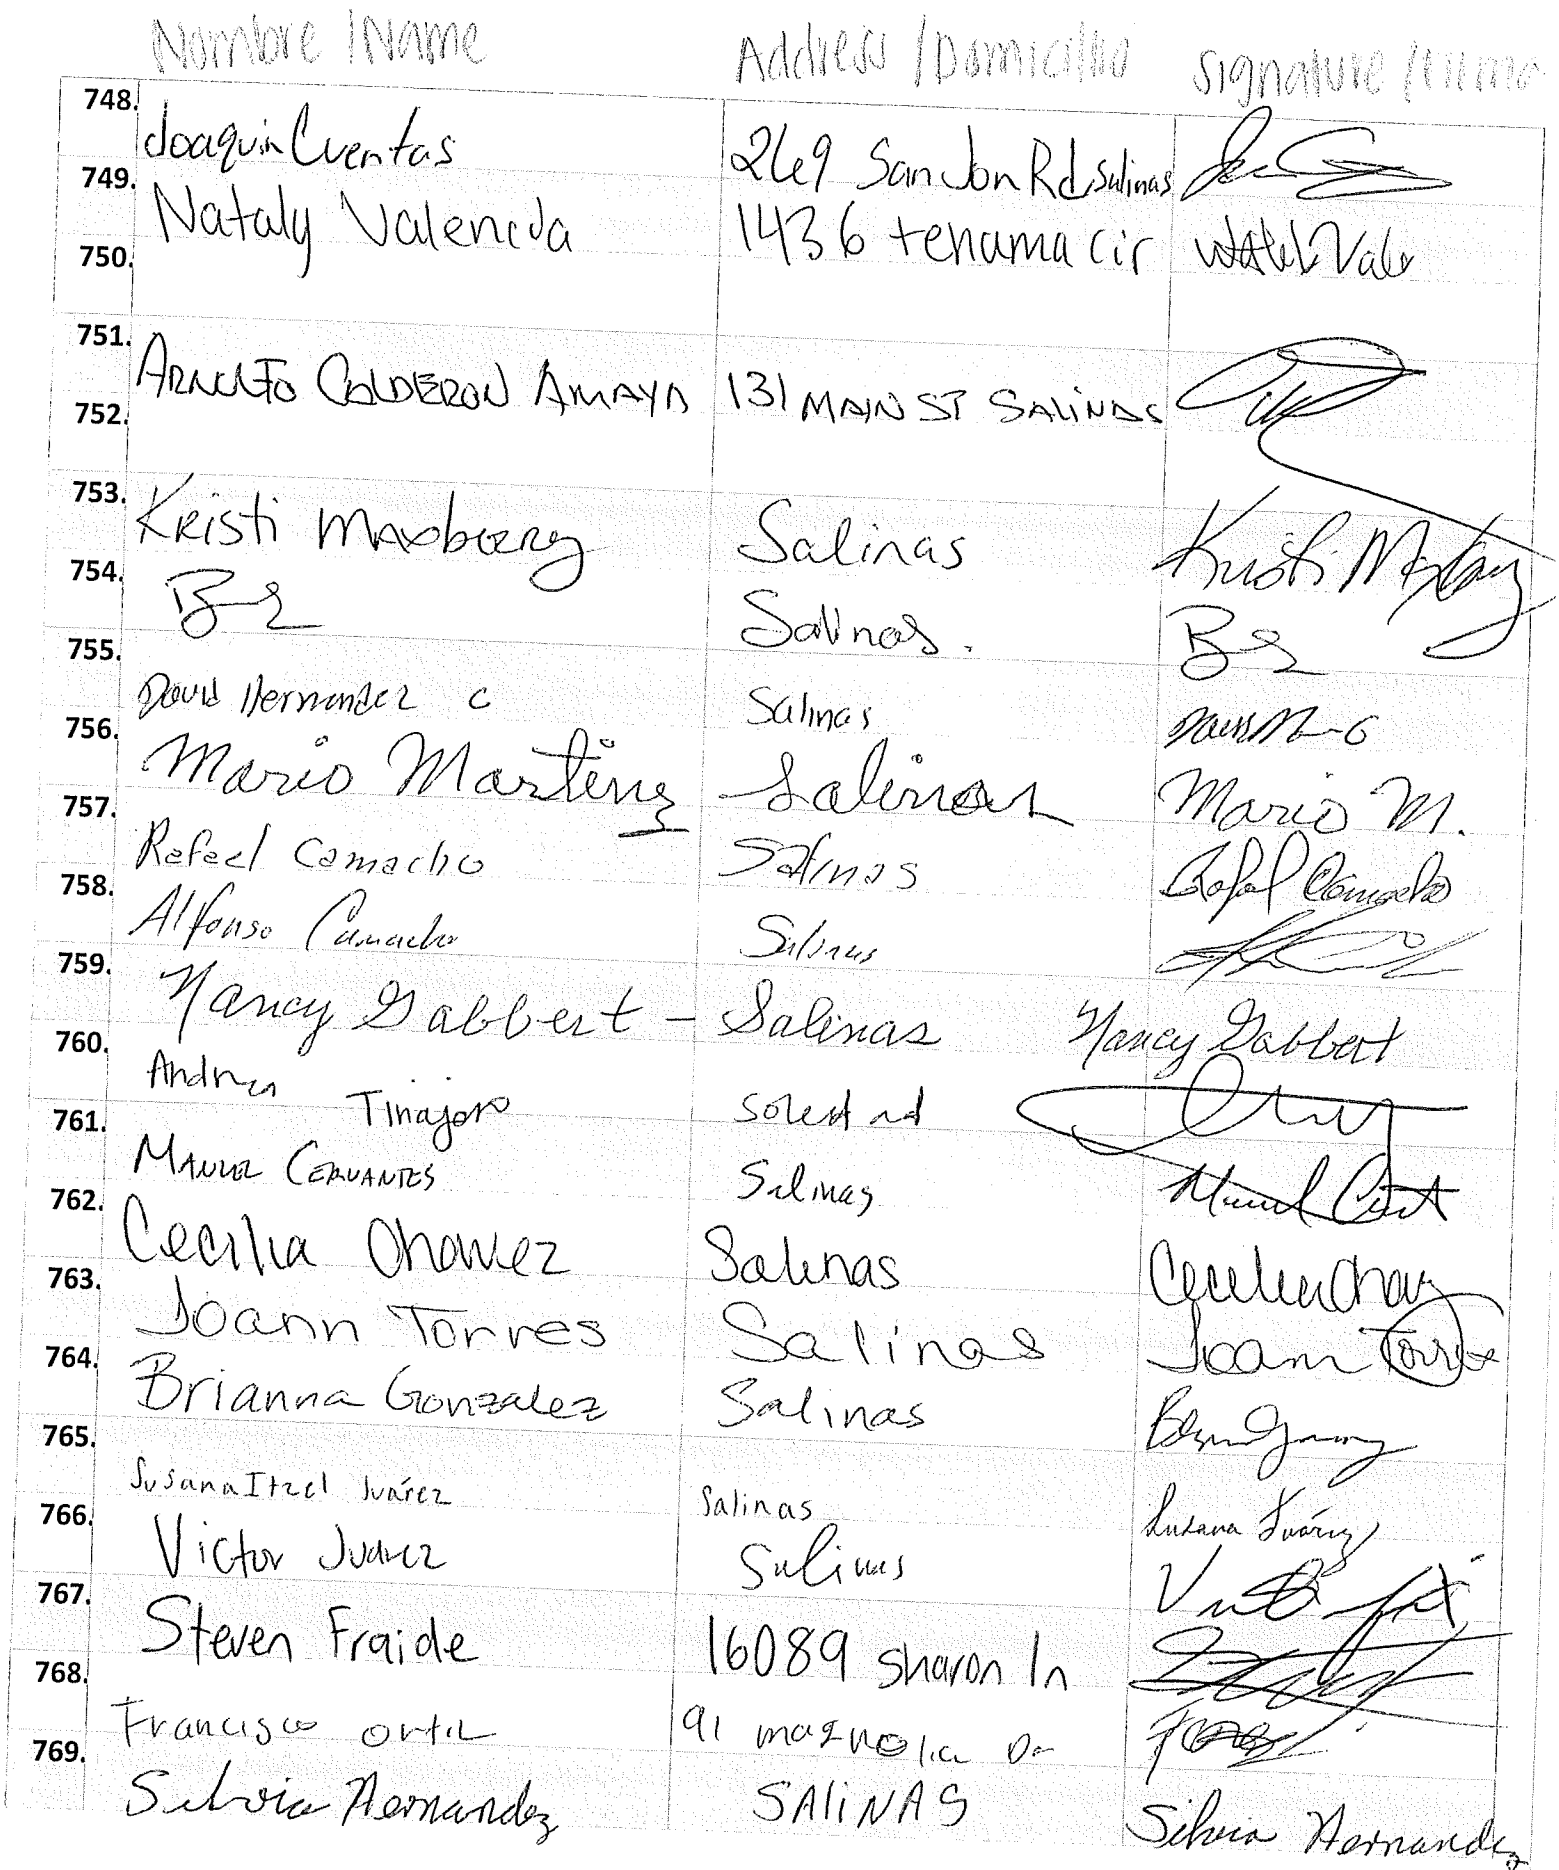 Nombre /Name Address /Domicilio Signature /Firma
748. Joaquin Cuentas 269 San Jon Rd Salinas
749. Nataly Valencia 1436 tenama cir
750.
751. Arnulfo CALDERON AMAYA 131 MAIN ST SALINAS
752.
753. Kristi Maxboerg Salinas Kristi
754. Salinas.
755. David Hernandez C Salinas
756. Mario Martinez Salinas Mario M.
757. Rafael Camacho Salinas Rafael Camacho
758. Alfonso Camacho Salinas
759. Nancy Gabbert - Salinas Nancy Gabbert
760. Andrea Tinajero Soledad
761. MANUEL CERVANTES Salinas
762. Cecilia Chavez Salinas
763. Joann Torres Salinas Joann Torres
764. Brianna Gonzalez Salinas
765. Susana Itzel Juárez Salinas Susana Juárez
766. Victor Juarez Salinas
767. Steven Fraide 16089 Sharon ln
768. Francisco Ortiz 91 magnolia Dr
769. Silvia Hernandez SALINAS Silvia Hernandez